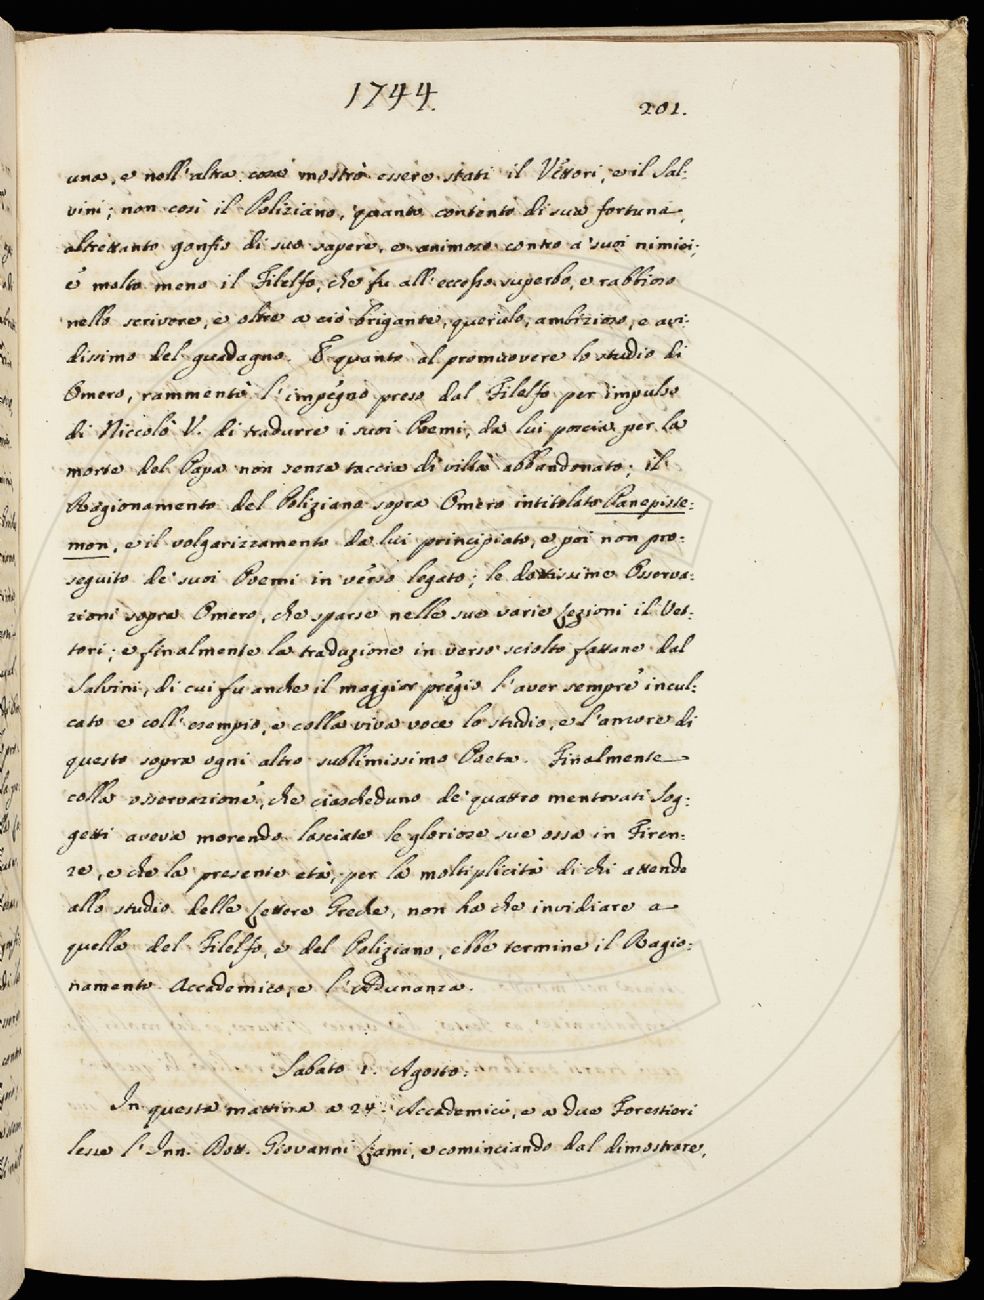 1744.
201.
una, e nell'altra cosa mostrò essere stati il Vettori, e il Sal-
vini; non così il Poliziano, quanto contento di sua fortuna,
altrettanto gonfio di suo sapere, e animoso contro a' suoi nimici;
e molto meno il Filelfo, che fu all'eccesso superbo, e rabbioso
nello scrivere, e oltre a ciò brigante, querulo, ambizioso, e avi-
dissimo del guadagno. E quanto al promuovere lo studio di
Omero, rammentò l'impegno preso dal Filelfo per impulso
di Niccolò V. di tradurre i suoi Poemi, da lui poscia per la
morte del Papa non senza taccia di viltà abbandonato; il
Ragionamento del Poliziano sopra Omero intitolato Panepiste-
mon, e il volgarizzamento da lui principiato, e poi non pro-
seguito de' suoi Poemi in verso legato; le dottissime Osserva-
zioni sopra Omero, che sparse nelle sue varie Lezioni il Vet-
tori; e finalmente la traduzione in verso sciolto fattane dal
Salvini, di cui fu anche il maggior pregio l'aver sempre incul-
cato e coll'esempio, e colla viva voce lo studio, e l'amore di
questo sopra ogni altro sublimissimo Poeta. Finalmente
colla osservazione, che ciascheduno de' quattro mentovati Sog-
getti aveva morendo lasciate le gloriose sue ossa in Firen-
ze, e che la presente età, per la moltiplicità di chi attende
allo studio delle Lettere Greche, non ha che invidiare a
quella del Filelfo, e del Poliziano, ebbe termine il Ragio-
namento Accademico, e l'Adunanza.
Sabato 1. Agosto.
In questa mattina a 24. Accademici, e a due Forestieri
lesse l'Inn. Dott. Giovanni Lami, e cominciando dal dimostrare,